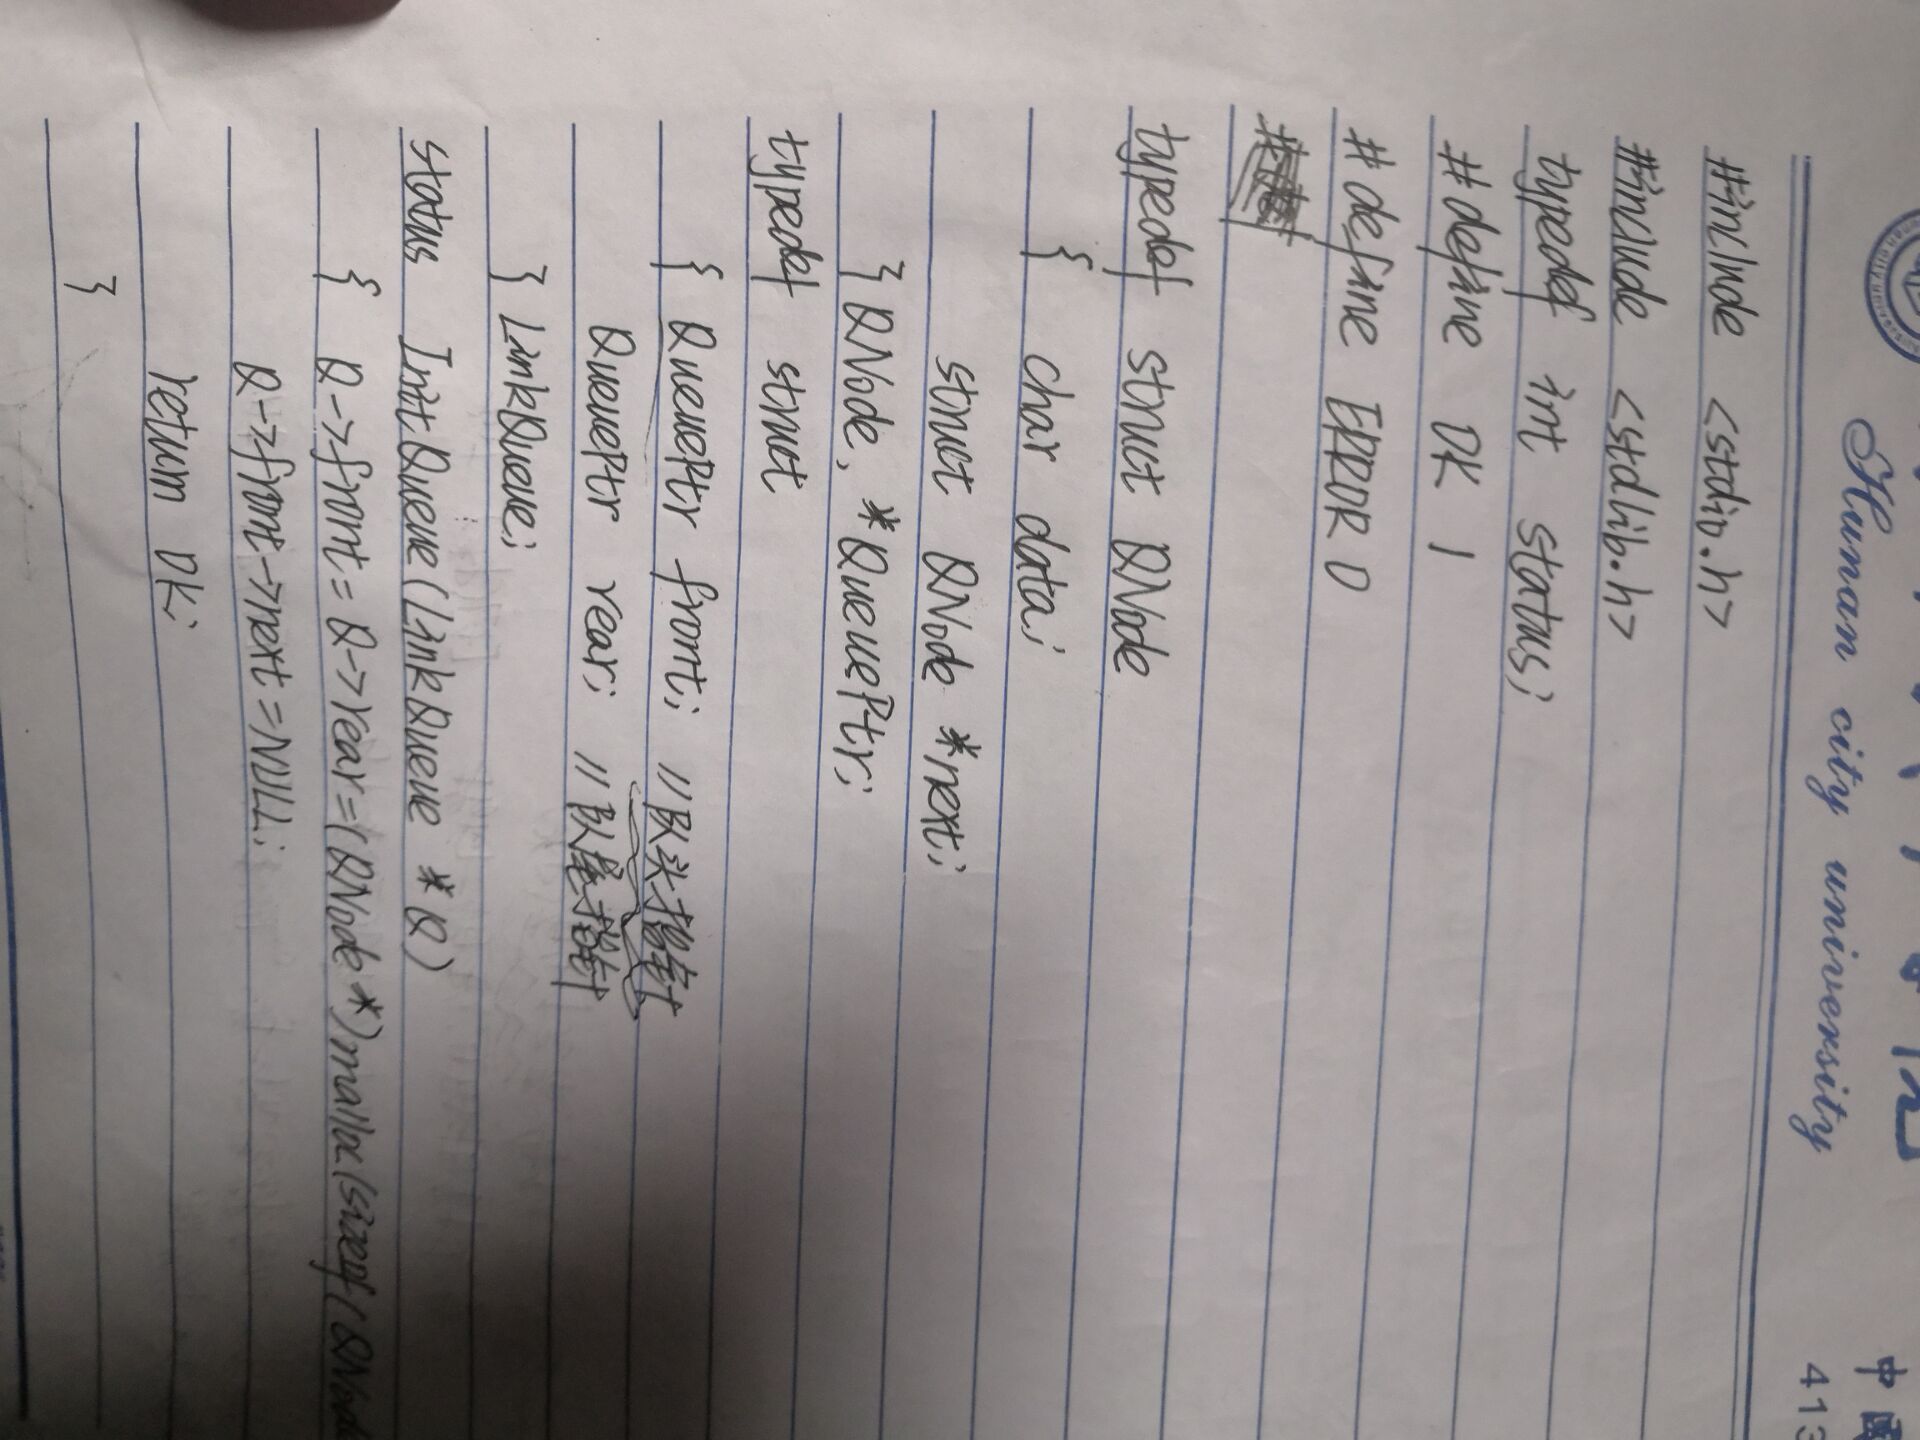 Hunan city university
中國
413
#include <stdio.h>
#include <stdlib.h>
typedef int status;
#define OK 1
#define ERROR 0
typedef struct QNode
{ char data;
struct QNode *next;
} QNode, *QueuePtr;
typedef struct
{ QueuePtr front; //队头指针
QueuePtr rear; //队尾指针
} LinkQueue;
status InitQueue(LinkQueue *Q)
{ Q->front=Q->rear=(QNode*)malloc(sizeof(QNod
Q->front->next=NULL;
return OK;
}